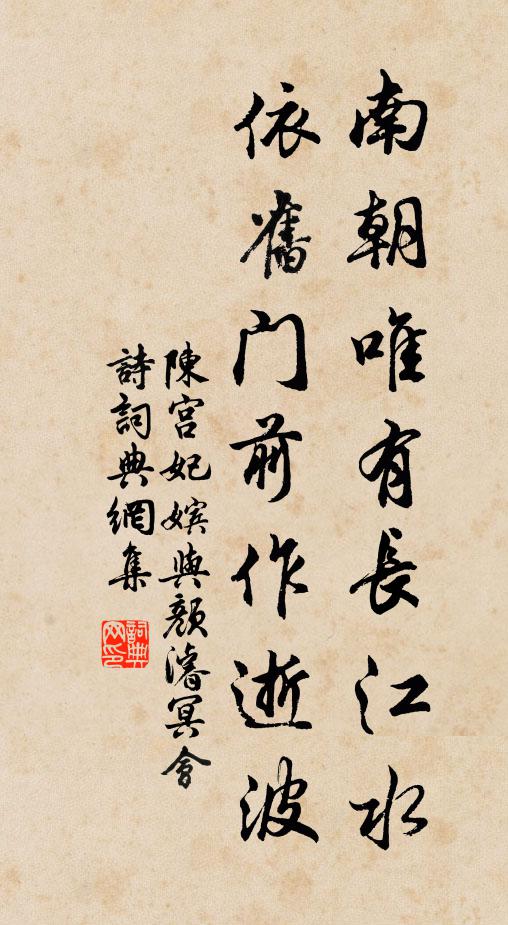 南朝唯有長江水
依舊门前作逝波
陳宫妃嬪與顏濬冥會
詩詞典網集
詞典
网印